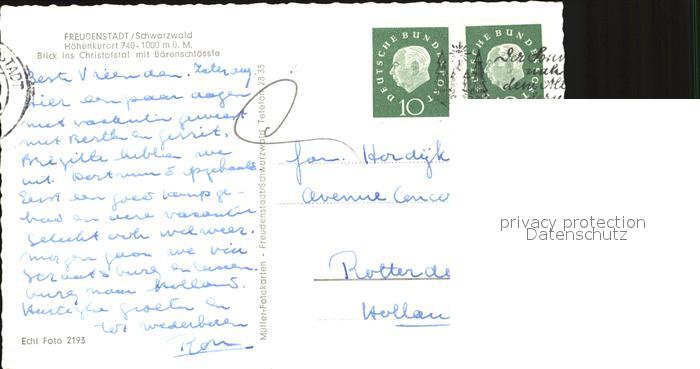 FREUDENSTADT/Schwarzwald
Höhenkurort 740-1000 m ü. M.
Blick ins Christofstal mit Bärenschlössle
Beste Vrienden.
Hier een paar dagen
met vacantie geweest
met Berth en Gerrit.
Brigitte hebben we
uit Dortmund opgehaald
Eerst een goed
had en deze vacantie
gelukt ook wel weer.
morgen gaan we via
Straatsburg en
burg naar Holland.
Hartelijke groeten en
tot wederhoren
Echt Foto 2193
Müller-Fotokarten - Freudenstadt/Schwarzwald Telefon 28 33
DEUTSCHE BUNDESPOST
10
DEUTSCHE BUNDESPOST
10
Fam. Hordijk
Avenue Conco
Rotterda
Hollan
privacy protection
Datenschutz